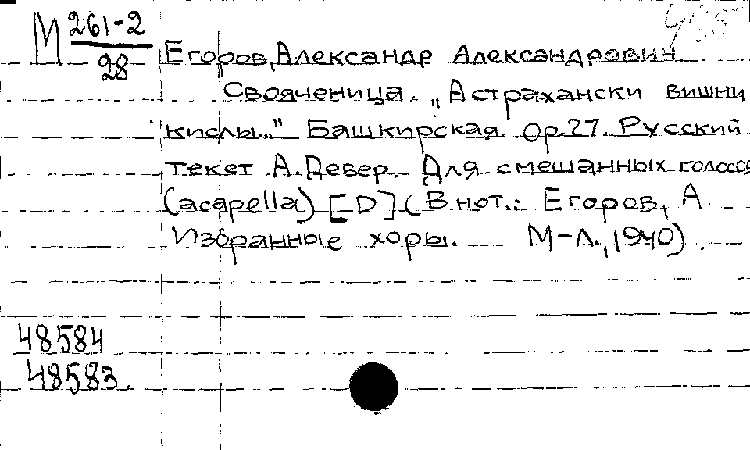 М 261-2
28
Егоров, Александр Александрович
Свояченица. „Астрахански вишни
кислы..." Башкирская. Ор.27. Русский
текст А. Девер. Для смешанных голосов
(acapella) [D] (В нот.: Егоров, А
Избранные хоры. М-Л., 1940).
48584
48583.